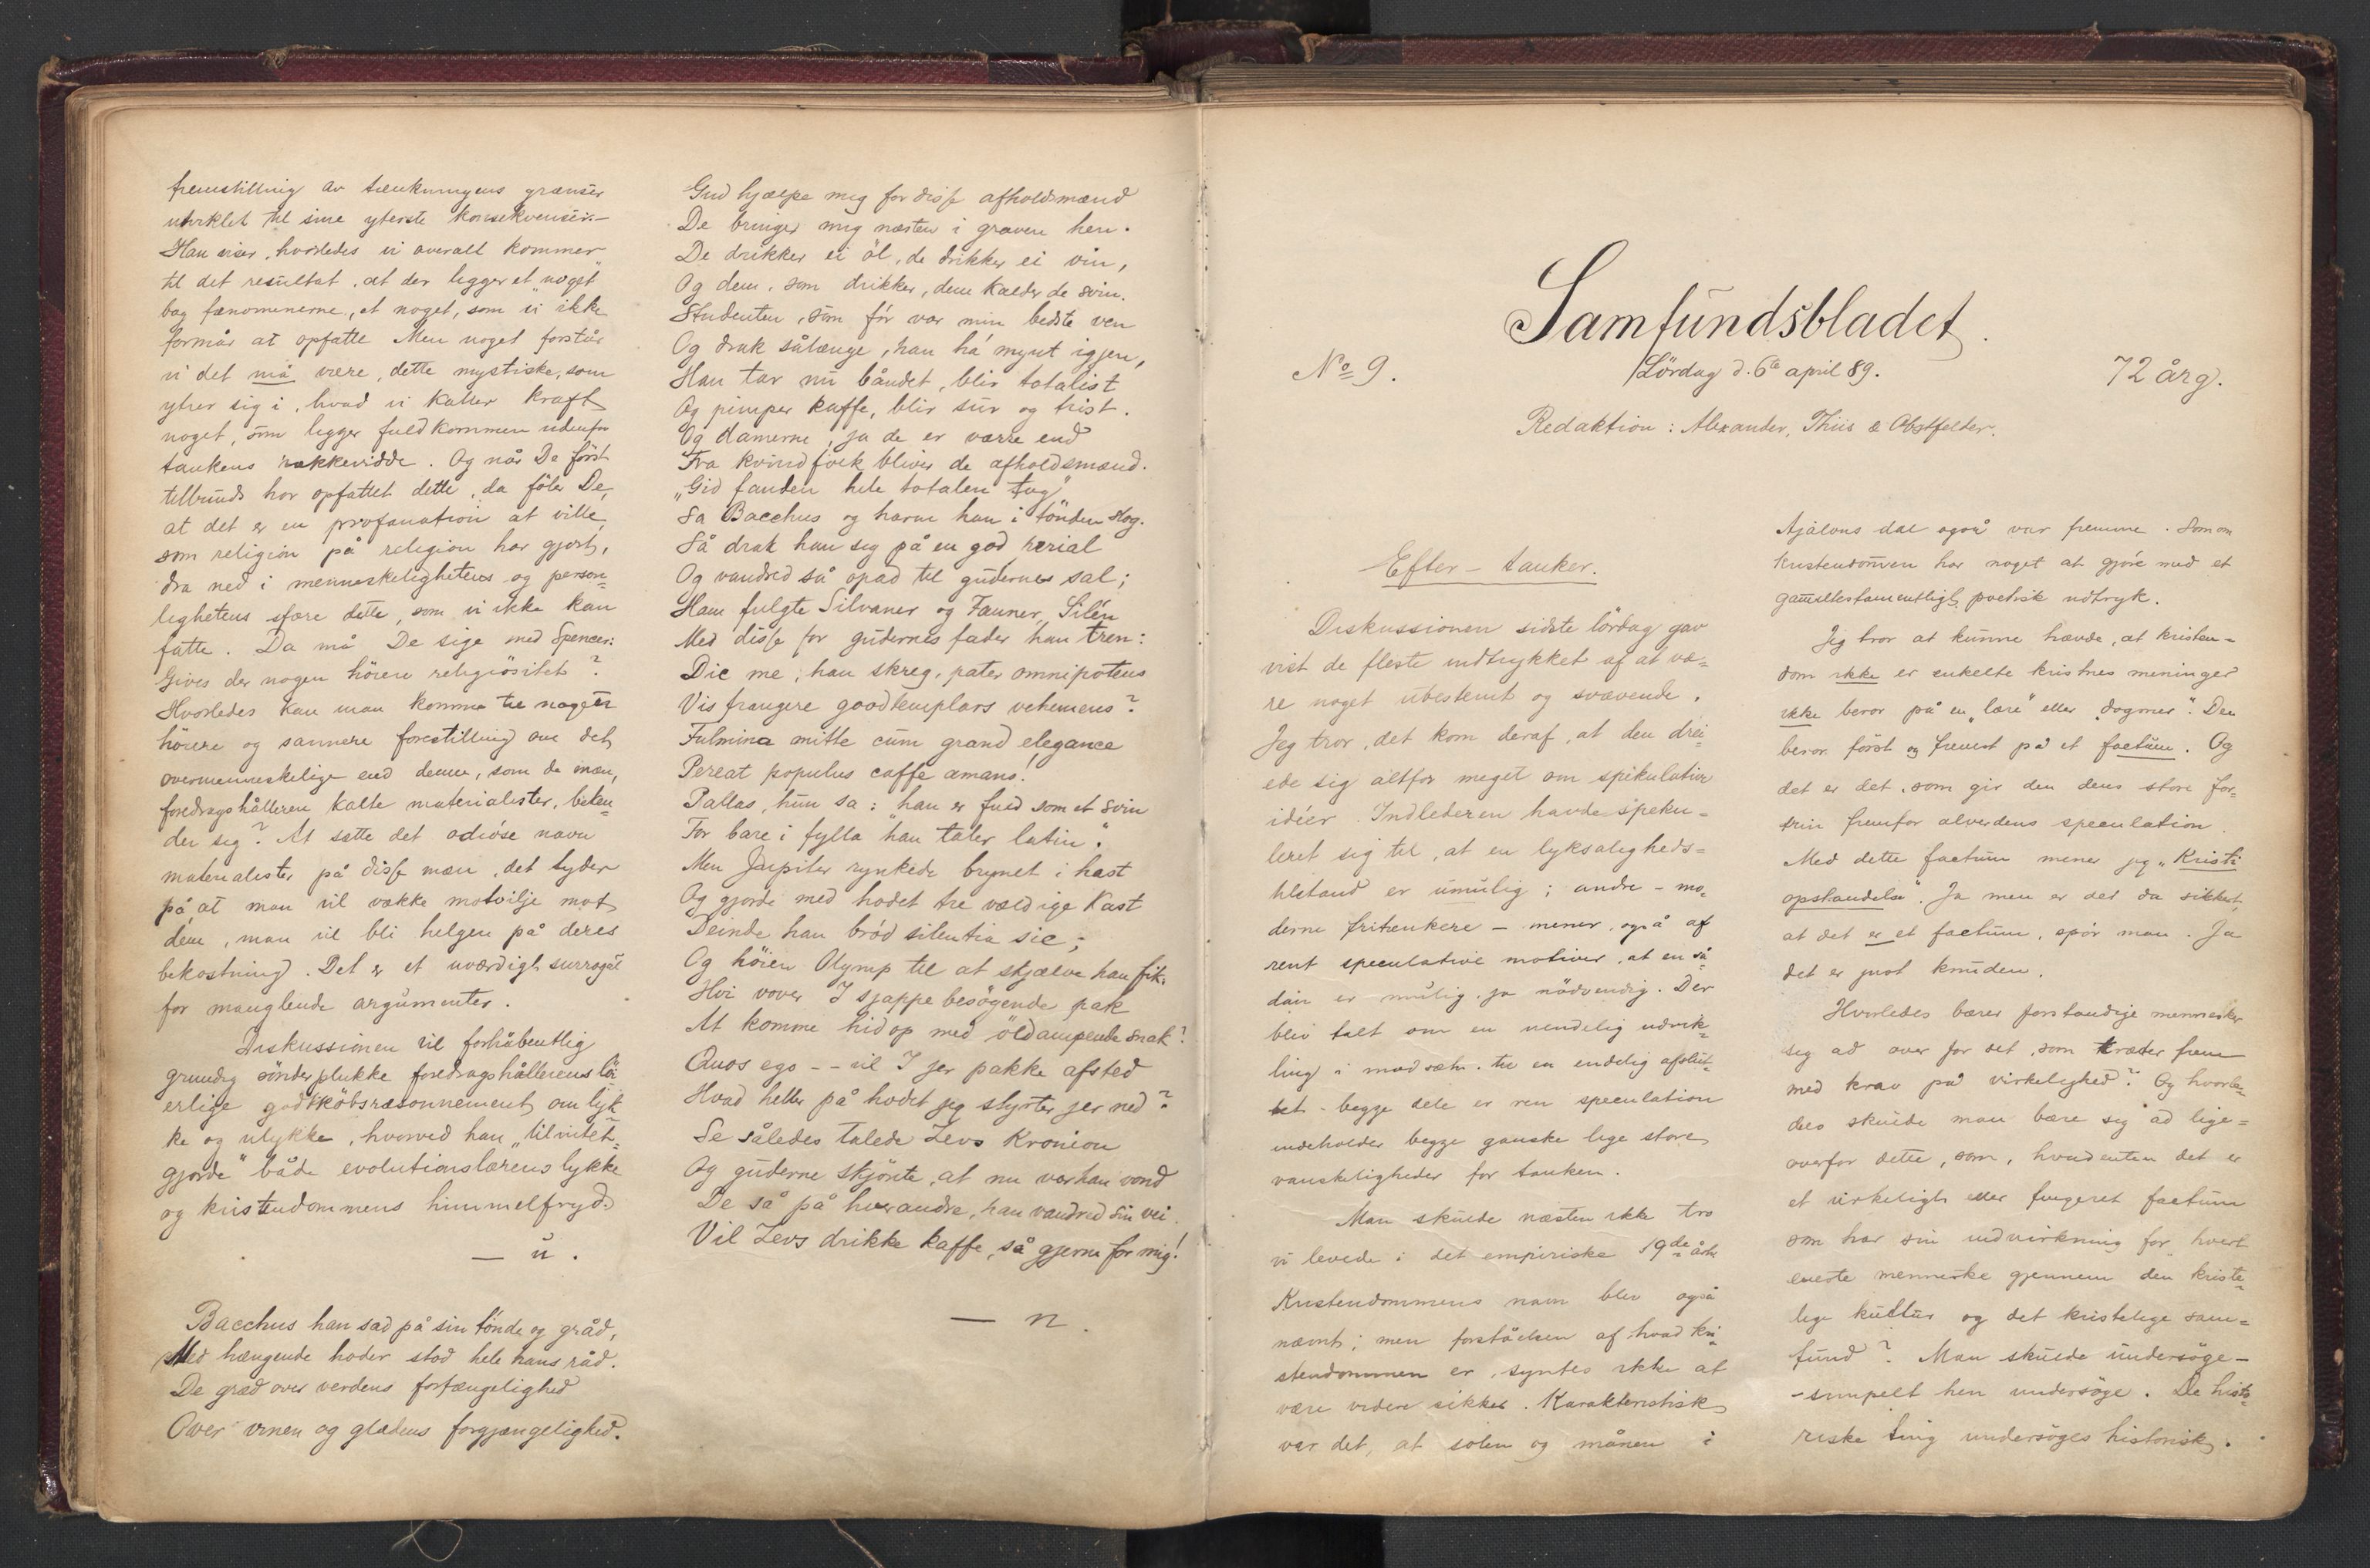 fremstilling av tænkningens grænser
utviklet til sine yterste konsekvenser.—
Han viser, hvorledes vi overalt kommer
til det resultat, at der ligger et "noget"
bag fænomenerne, et noget, som vi ikke
formår at opfatte. Men noget forstår
vi det må være, dette mystiske, som
ytrer sig i, hvad vi kaller kraft,
noget, som ligger fuldkommen udenfor
tankens rækkevidde. Og når De först
tilbunds har opfattet dette, da föler De,
at det er en profanation at ville,
som religion på religion har gjort,
dra ned i menneskelighetens og person=
lighetens sfære dette, som vi ikke kan
fatte. Da må De sige med Spencer:
Gives der nogen höiere religiösitet?
Hvorledes kan man komme til nogen
höiere og sannere forestilling om det
overmenneskelige end denne, som de mæn,
foredragshålleren kalte materialister, beken=
der sig? At sætte det odiöse navn
materialister på disse mæn, det tyder
på, at man vil vække motvilje mot
dem, man vil bli helgen på deres
bekostning. Det er et uværdigt surrogat
for manglende argumenter.
Diskussionen vil forhåbentlig
grundig sönderplukke foredragshållerens lä
erlige godtköbsræsonnement om lyk=
ke og ulykke, hvorved han „tilintet=
gjorde" både evolutionslærens lykke
og kristendommens himmelfryd.
— u.
Bacchus han sad på sin tönde og gråd,
Med hængende hoder stod hele hans råd.
De græd over verdens forfængelighed
Over vinen og glædens forgjængelighed.
Gud hjælpe mig for disse afholdsmænd
De bringer mig næsten i graven hen.
De drikker ei öl, de drikker ei vin,
Og dem, som drikker, dem kalder de svin.
Studenten, som för var min bedste ven
Og drak sålænge, han ha' mynt igjen,
Han tar nu båndet, blir totalist
Og pimper kaffe, blir sur og trist.
Og damerne, ja de er værre end
Fra kvindfolk bliver de afholdsmænd.
„Gid fanden hele totalen tog"
Sa Bacchus og harm han i tönden slog.
Så drak han sig på en god perial
Og vandred så opad til gudernes sal;
Ham fulgte Silvaner og Fauner, Silén
Med disse for gudernes fader han tren:
Dic me, han skreg, pater omnipotens
Vis frangere goodtemplars vehemens?
Fulmina mitte cum grand elegance
Pereat populus caffe amans!
Pallas, hun sa: "han er fuld som et svin
For bare i fylla han taler latin".
Men Jupiter rynkede brynet i hast
Og gjorde med hodet tre vældige kast
Deinde han bröd silentia sic;
Og höien Olymp til at skjælve han fik.
Hvi vover I sjappebesögende pak
At komme hidop med öldampende snak?
Quos ego -- vil I jer pakke afsted
Hvad heller på hodet jeg styrter jer ned?
Se således talede Zevs Kronion
Og guderne skjönte, at nu var han vond
De så på hverandre, han vandred sin vei.
Vil Zevs drikke kaffe, så gjerne for mig!
— n.
Samfundsbladet.
No 9.
Lördag d. 6te april 89.
72 årg.
Redaktion: Alexander, Thiis & Obstfelder.
Efter-tanker.
Diskussionen sidste lördag gav
vist de fleste indtrykket af at væ=
re noget ubestemt og svævende.
Jeg tror, det kom deraf, at den drei=
ede sig altfor meget om spekulative
idéer. Indlederen havde speku=
leret sig til, at en lyksaligheds=
tilstand er umulig; andre - mo=
derne fritænkere - mener, også af
rent speculative motiver, at en så=
dan er mulig, ja nödvendig. Der
blev talt om en uendelig udvik=
ling i modsætn. til en endelig afslut=
tet - begge dele er ren speculation
indeholder begge ganske lige store
vanskeligheder for tanken.
Man skulde næsten ikke tro
vi levede i det empiriske 19de årh.
Kristendommens navn blev også
nævnt; men forståelsen af hvad kri=
stendommen er, syntes ikke at
være videre sikker. Karakteristisk
var det, at solen og månen i
Ajalons dal også var fremme. Som om
kristendommen har noget at gjöre med et
gammeltestamentligt, poetisk udtryk.
Jeg tror at kunne hævde, at kristen=
dom ikke er enkelte kristnes meninger
ikke beror på en „lære" eller „dogmer". Den
beror först og fremst på et factum. Og
det er det, som gir den dens store for=
trin fremfor alverdens speculation.
Med dette factum mener jeg „Kristi
opstandelse". Ja men er det da sikkert,
at det er et factum, spör man. Ja
det er just knuden.
Hvorledes bærer forstandige mennesker
sig ad over for det, som træder frem
med krav på virkelighed? Og hvorle=
des skulde man bære sig ad lige=
overfor dette, som, hvadenten det er
et virkeligt eller fingeret factum
som har sin indvirkning for hvert
eneste menneske gjennem den kriste=
lige kultur og det kristelige sam=
fund? Man skulde undersöge—
-simpelt hen undersöge. De histo=
riske ting undersöges historisk.